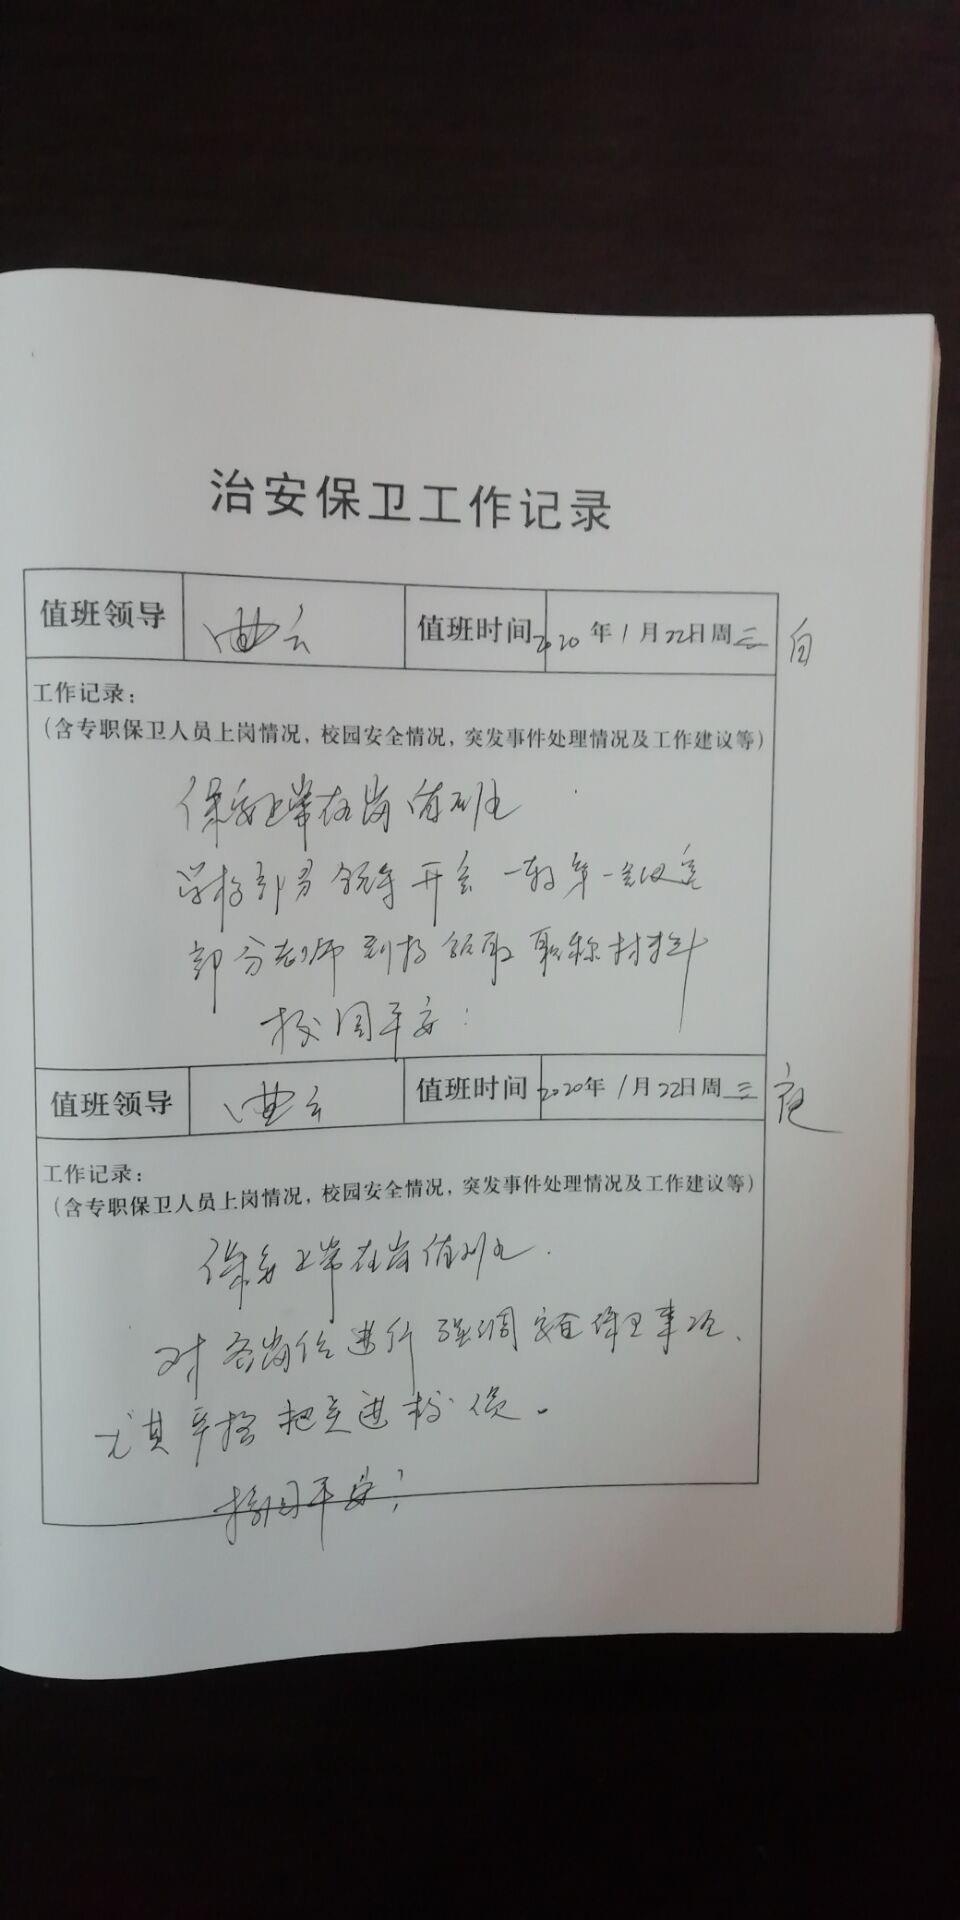 治安保卫工作记录
值班领导 曲云 值班时间 2020年1月22日周三 白
工作记录：
（含专职保卫人员上岗情况，校园安全情况，突发事件处理情况及工作建议等）
保安正常在岗值班
学校部分领导开会 一教第一会议室
部分老师到校领取职称材料
校园平安！
值班领导 曲云 值班时间 2020年1月22日周三 夜
工作记录：
（含专职保卫人员上岗情况，校园安全情况，突发事件处理情况及工作建议等）
保安正常在岗值班.
对各岗位进行强调安全保卫事项、
尤其严格把关进校人员。
校园平安！